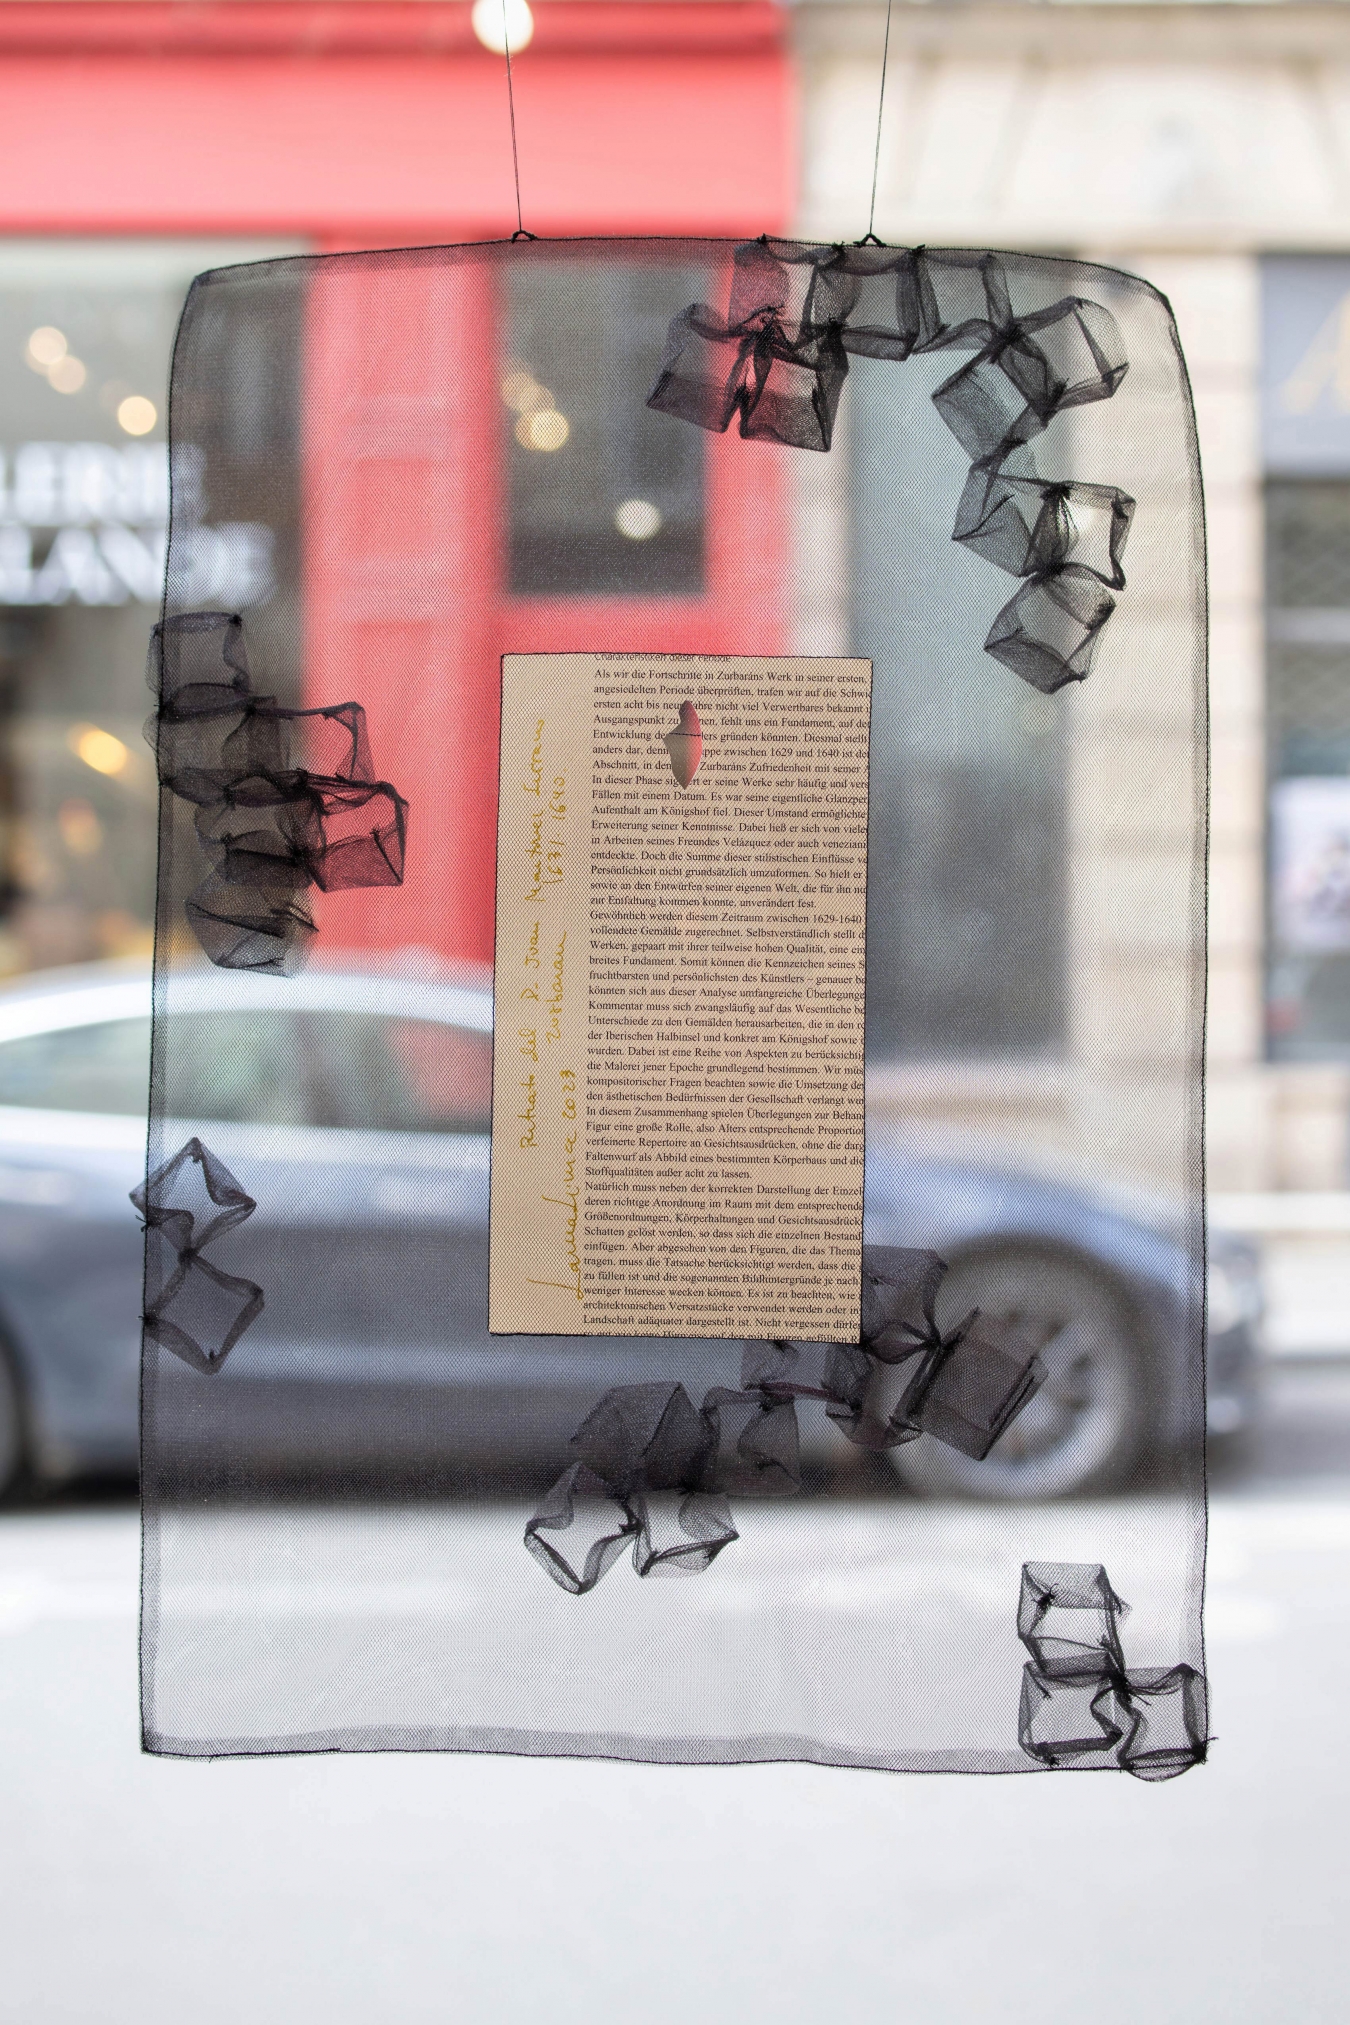 LERIE
LANDE
Charakteristiken dieser Periode
Als wir die Fortschritte in Zurbaráns Werk in seiner ersten,
angesiedelten Periode überprüften, trafen wir auf die
ersten acht bis nicht viel Verwertbares bekannt
Ausgangspunkt fehlt uns ein Fundament, auf
Entwicklung gründen könnten. Diesmal
anders dar, zwischen 1629 und 1640 ist
Abschnitt, in Zurbaráns Zufriedenheit mit seiner
In dieser Phase er seine Werke sehr häufig und
Fällen mit einem Datum. Es war seine eigentliche
Aufenthalt am Königshof fiel. Dieser Umstand ermöglichte
Erweiterung seiner Kenntnisse. Dabei ließ er sich von
in Arbeiten seines Freundes Velázquez oder auch
entdeckte. Doch die Summe dieser stilistischen Einflüsse
Persönlichkeit nicht grundsätzlich umzuformen. So hielt er
sowie an den Entwürfen seiner eigenen Welt, die für ihn
zur Entfaltung kommen konnte, unverändert fest.
Gewöhnlich werden diesem Zeitraum zwischen 1629-1640
vollendete Gemälde zugerechnet. Selbstverständlich stellt
Werken, gepaart mit ihrer teilweise hohen Qualität, eine
breites Fundament. Somit können die Kennzeichen seines
fruchtbarsten und persönlichsten des Künstlers – genauer
könnten sich aus dieser Analyse umfangreiche
Kommentar muss sich zwangsläufig auf das Wesentliche
Unterschiede zu den Gemälden herausarbeiten, die in den
der Iberischen Halbinsel und konkret am Königshof sowie
wurden. Dabei ist eine Reihe von Aspekten zu
die Malerei jener Epoche grundlegend bestimmen. Wir
kompositorischer Fragen beachten sowie die Umsetzung
den ästhetischen Bedürfnissen der Gesellschaft verlangt
In diesem Zusammenhang spielen Überlegungen zur
Figur eine große Rolle, also Alters entsprechende
verfeinerte Repertoire an Gesichtsausdrücken, ohne die
Faltenwurf als Abbild eines bestimmten Körperbaus und
Stoffqualitäten außer acht zu lassen.
Natürlich muss neben der korrekten Darstellung der
deren richtige Anordnung im Raum mit dem
Größenordnungen, Körperhaltungen und
Schatten gelöst werden, so dass sich die einzelnen
einfügen. Aber abgesehen von den Figuren, die das Thema
tragen, muss die Tatsache berücksichtigt werden, dass die
zu füllen ist und die sogenannten Bildhintergründe je nach
weniger Interesse wecken können. Es ist zu beachten, wie
architektonischen Versatzstücke verwendet werden oder
Landschaft adäquater dargestellt ist. Nicht vergessen
Retrato del P. Juan Martínez Serrano
Zurbaran 1631/1640
2023